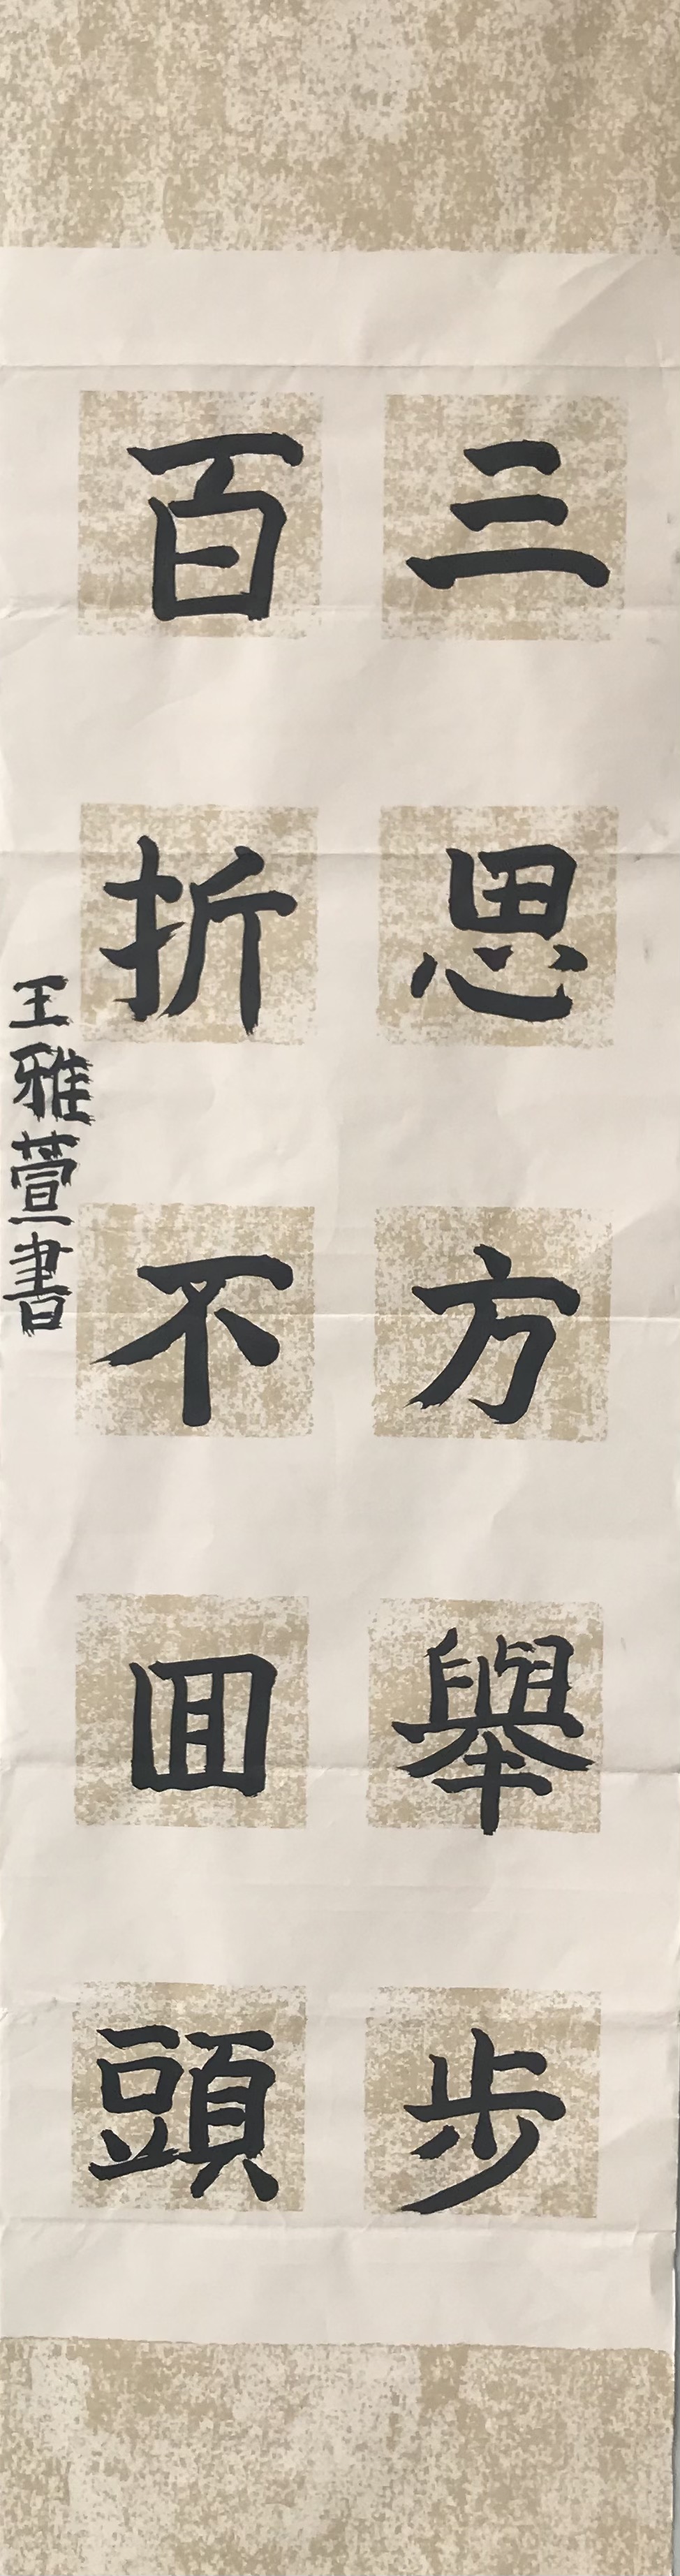 三思方舉步
百折不囬頭
王雅萱書